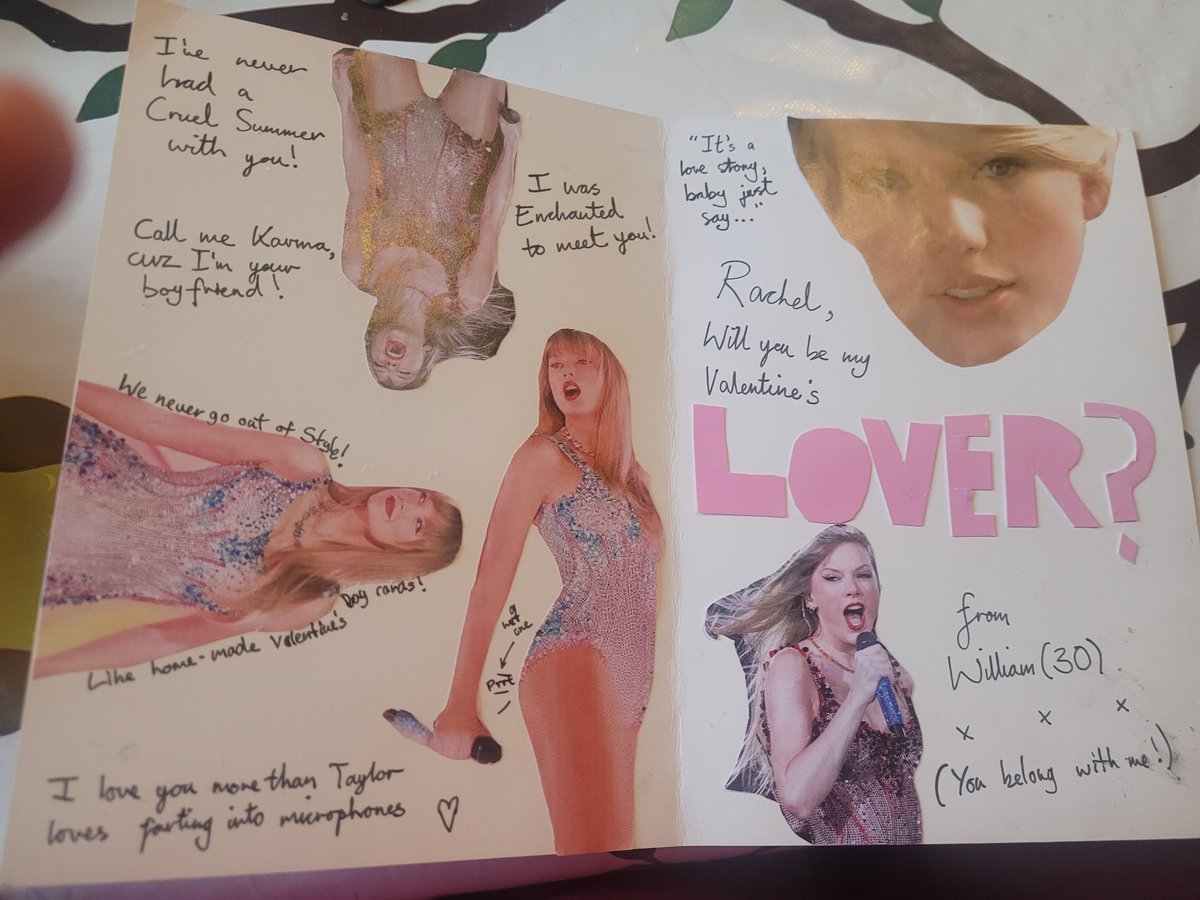 I've never
had a
Cruel Summer
with you!
I was
Enchanted
to meet you!
Call me Karma,
cuz I'm your
boyfriend!
We never go out of Style!
Like home-made Valentine's
Day cards!
a
wet
one
Prrt
I love you more than Taylor
loves farting into microphones
"It's a
love story,
baby just
say..."
Rachel,
Will you be my
Valentine's
LOVER?
from
William (30)
x x x
(You belong with me!)